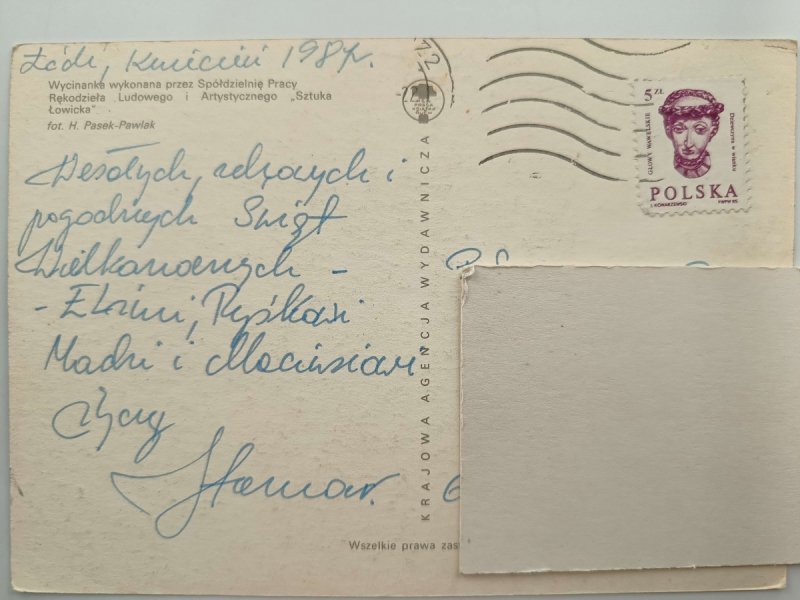 Łódź, kwiecień 1987r.
Wycinanka wykonana przez Spółdzielnię Pracy
Rękodzieła Ludowego i Artystycznego „Sztuka
Łowicka"
fot. H. Pasek-Pawlak
Wesołych, zdrowych i
pogodnych Świąt
Wielkanocnych -
- Elżuni, Ryśkowi
Madzi i Maciusiowi
życzy
KRAJOWA AGENCJA WYDAWNICZA
Wszelkie prawa zast
72
5 ZŁ
GŁOWY WAWELSKIE
Dziewczyna w wianku
POLSKA
J. KONARZEWSKI PWPW 85